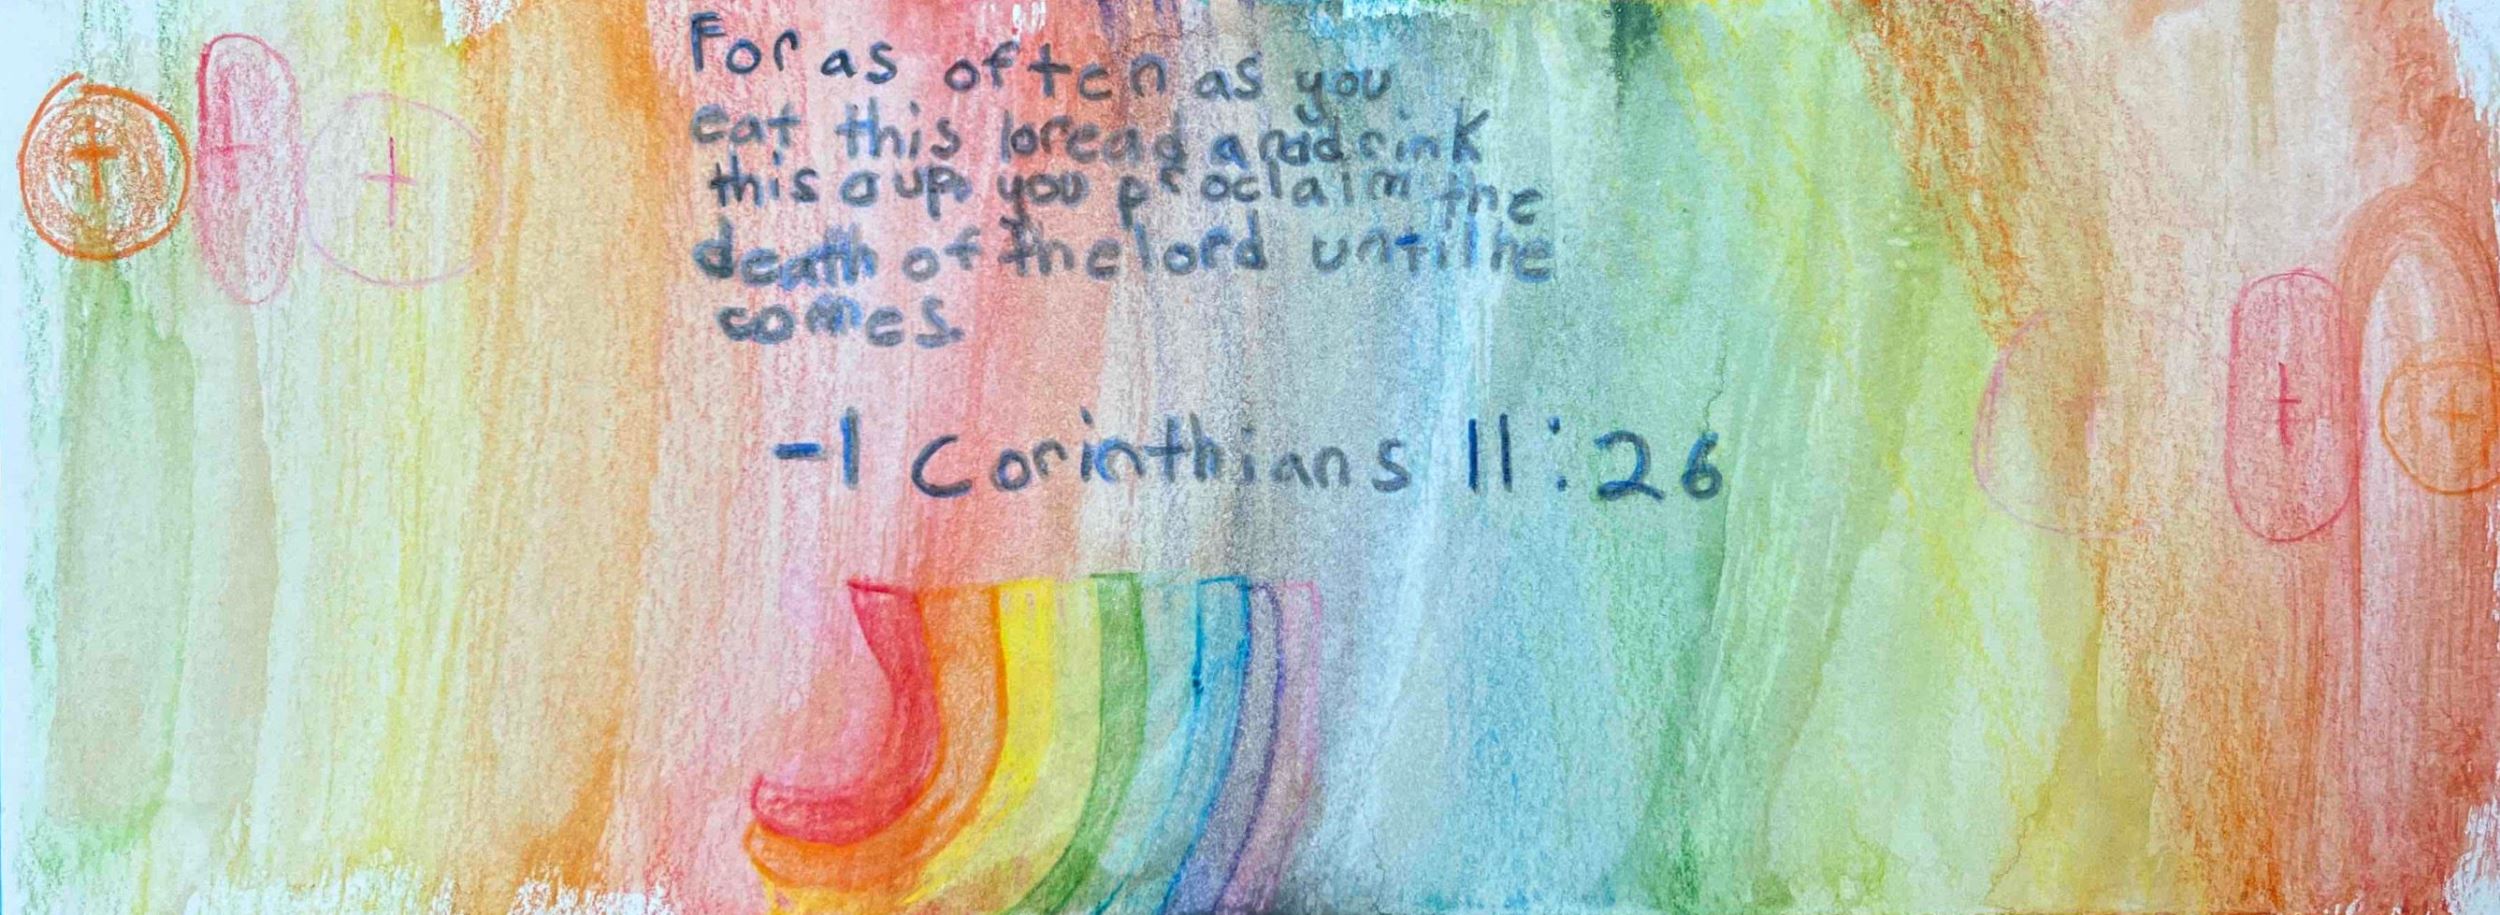 For as often as you
eat this bread and drink
this cup you proclaim the
death of the lord until he
comes.
-1 Corinthians 11:26